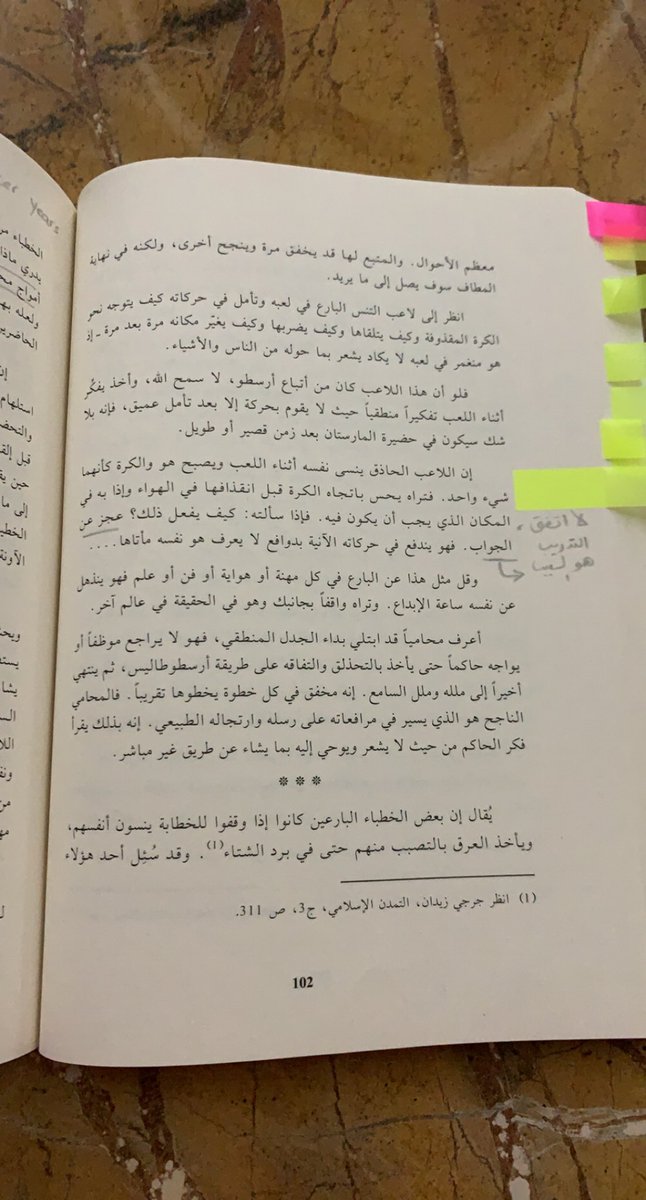 معظم الأحوال. والمتبع لها قد يخفق مرة وينجح أخرى، ولكنه في نهاية
المطاف سوف يصل إلى ما يريد.
انظر إلى لاعب التنس البارع في لعبه وتأمل في حركاته كيف يتوجه نحو
الكرة المقذوفة وكيف يتلقاها وكيف يضربها وكيف يغيّر مكانه مرة بعد مرة ـ إذ
هو منغمر في لعبه لا يكاد يشعر بما حوله من الناس والأشياء.
فلو أن هذا اللاعب كان من أتباع أرسطو، لا سمح الله، وأخذ يفكّر
أثناء اللعب تفكيراً منطقياً حيث لا يقوم بحركة إلا بعد تأمل عميق، فإنه بلا
شك سيكون في حضيرة المارستان بعد زمن قصير أو طويل.
إن اللاعب الحاذق ينسى نفسه أثناء اللعب ويصبح هو والكرة كأنهما
شيء واحد. فتراه يحس باتجاه الكرة قبل انقذافها في الهواء وإذا به في
المكان الذي يجب أن يكون فيه. فإذا سألته: كيف يفعل ذلك؟ عجز عن
الجواب. فهو يندفع في حركاته الآنية بدوافع لا يعرف هو نفسه مأتاها....
لا اتفق،
التدريب
هو
وقل مثل هذا عن البارع في كل مهنة أو هواية أو فن أو علم فهو ينذهل
عن نفسه ساعة الإبداع. وتراه واقفاً بجانبك وهو في الحقيقة في عالم آخر.
أعرف محامياً قد ابتلي بداء الجدل المنطقي، فهو لا يراجع موظفاً أو
يواجه حاكماً حتى يأخذ بالتحذلق والتفاقه على طريقة أرسطوطاليس، ثم ينتهي
أخيراً إلى ملله وملل السامع. إنه مخفق في كل خطوة يخطوها تقريباً. فالمحامي
الناجح هو الذي يسير في مرافعاته على رسله وارتجاله الطبيعي. إنه بذلك يقرأ
فكر الحاكم من حيث لا يشعر ويوحي إليه بما يشاء عن طريق غير مباشر.
* * *
يُقال إن بعض الخطباء البارعين كانوا إذا وقفوا للخطابة ينسون أنفسهم،
ويأخذ العرق بالتصبب منهم حتى في برد الشتاء(1). وقد سُئِل أحد هؤلاء
(1) انظر جرجي زيدان، التمدن الإسلامي، ج3، ص 311.
102